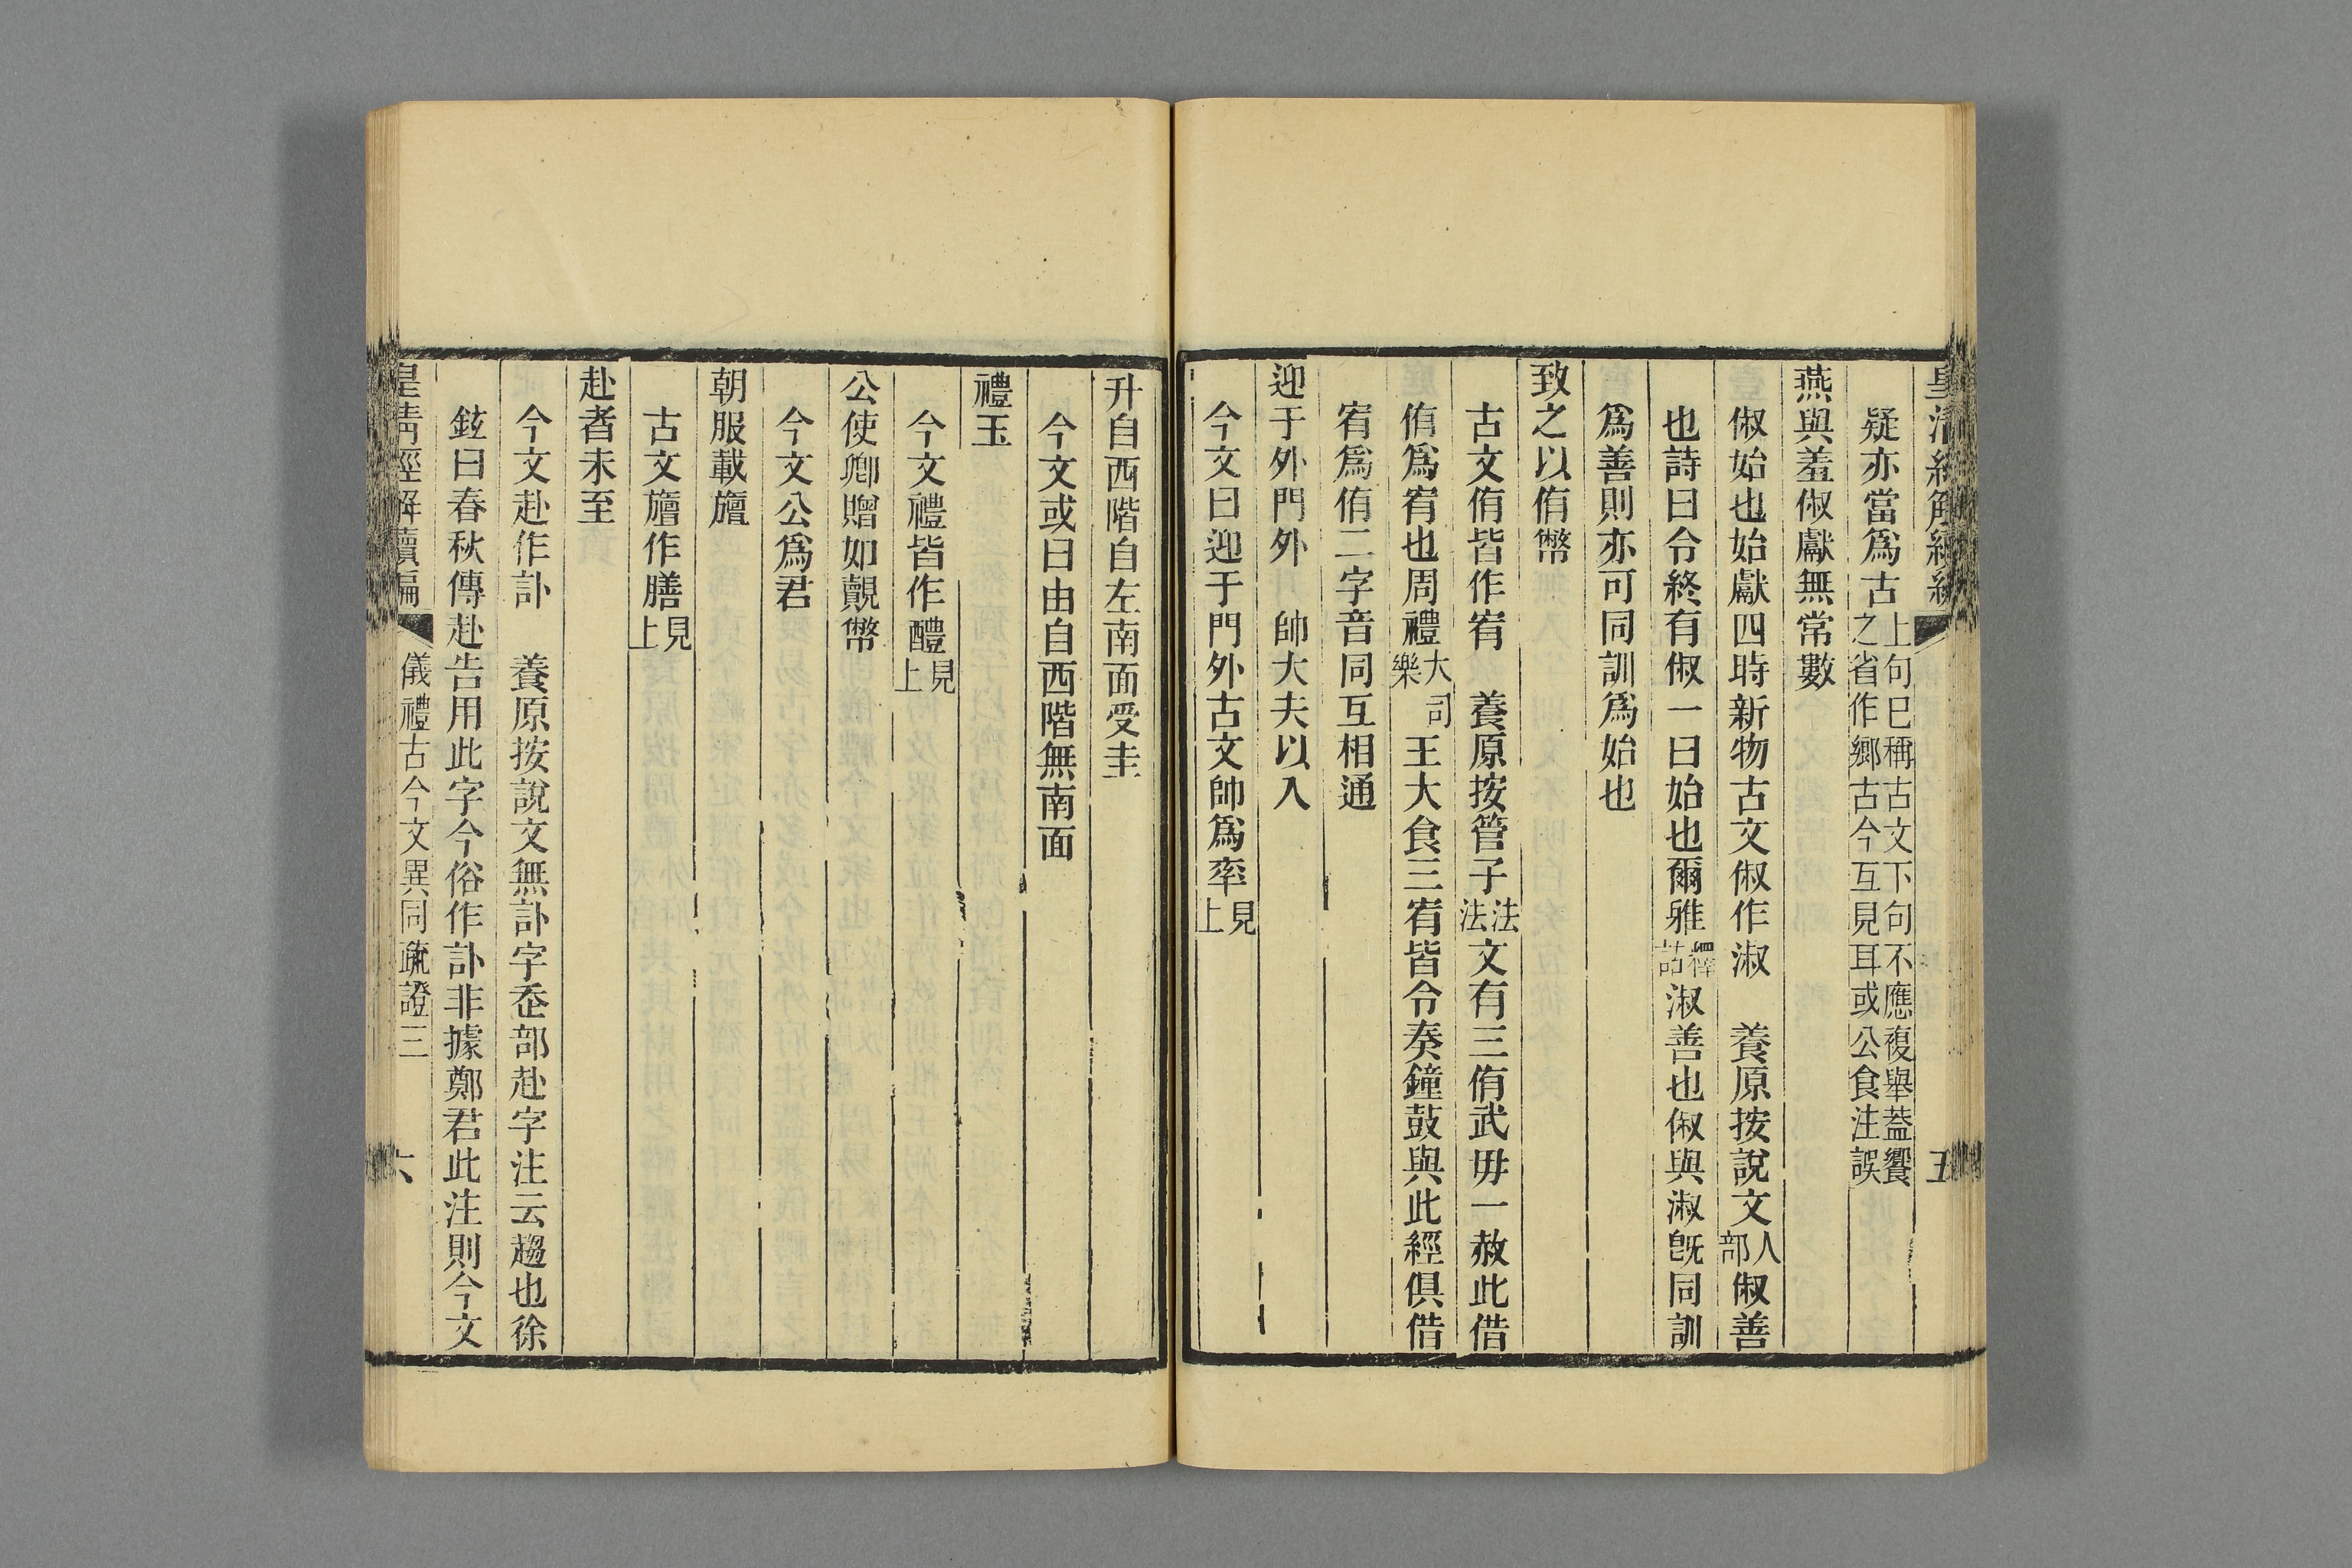 疑亦當爲古上句已稱古文下句不應複舉蓋饗之省作鄉古今互見耳或公食注誤
燕與羞俶獻無常數
俶始也始獻四時新物古文俶作淑　養原按說文人部俶善
也詩曰令終有俶一曰始也爾雅釋詁淑善也俶與淑旣同訓
爲善則亦可同訓爲始也
致之以侑幣
古文侑皆作宥　養原按管子法法文有三侑武毋一赦此借
侑爲宥也周禮大司樂王大食三宥皆令奏鐘鼓與此經俱借
宥爲侑二字音同互相通
迎于外門外　帥大夫以入
今文曰迎于門外古文帥爲率見上
升自西階自左南面受圭
今文或曰由自西階無南面
禮玉
今文禮皆作醴見上
公使卿贈如覿幣
今文公爲君
朝服載旜
古文旜作膳見上
赴者未至
今文赴作訃　養原按說文無訃字走部赴字注云趨也徐
鉉曰春秋傳赴告用此字今俗作訃非據鄭君此注則今文
皇清經解續編　儀禮古今文異同疏證三　六